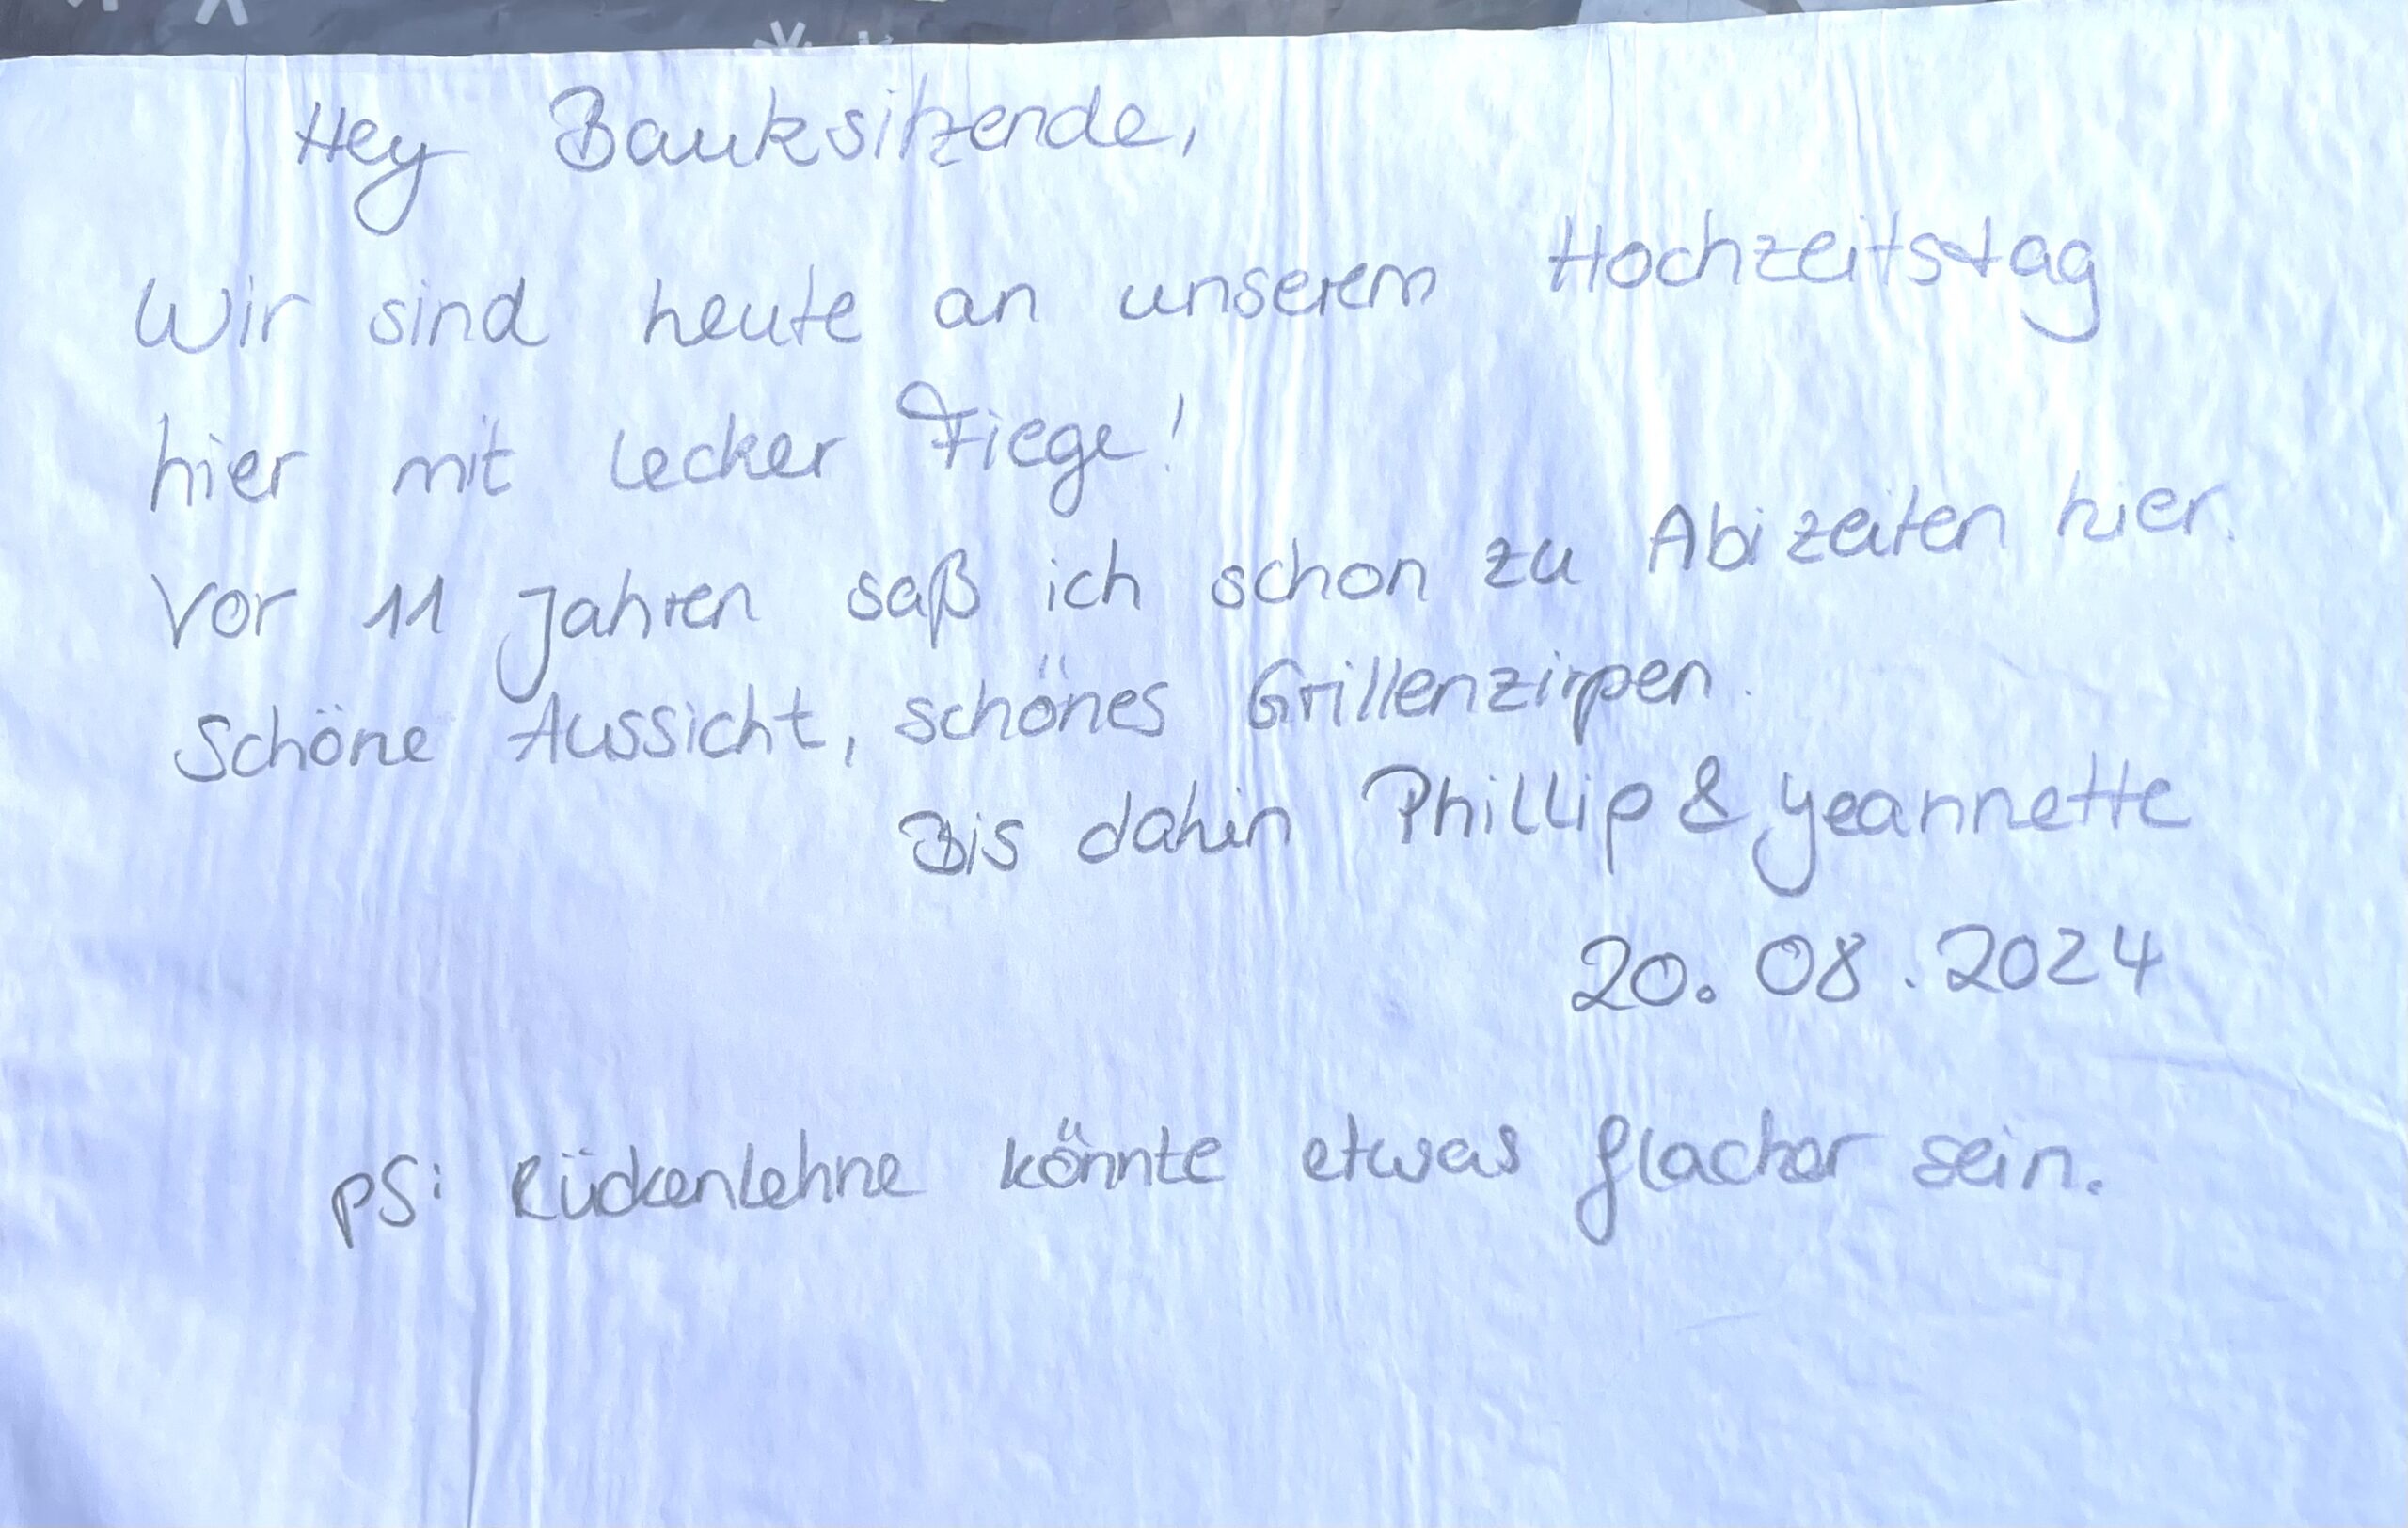 Hey Banksitzende,
Wir sind heute an unserem Hochzeitstag
hier mit lecker Fiege!
Vor 11 Jahren saß ich schon zu Abizeiten hier.
Schöne Aussicht, schönes Grillenzirpen.
Bis dahin Phillip & Yeannette
20.08.2024
PS: Rückenlehne könnte etwas flacher sein.